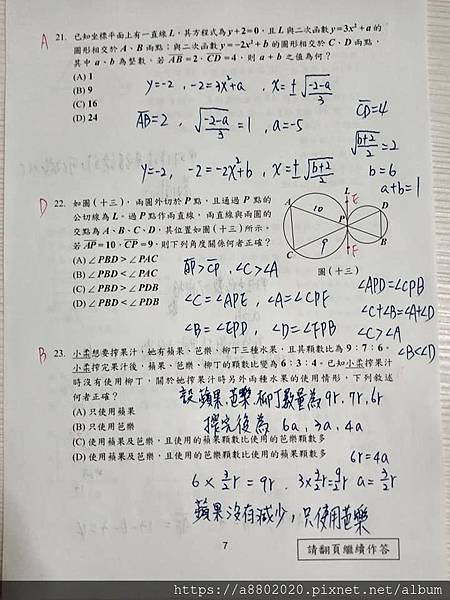 A
21. 已知坐標平面上有一直線 L，其方程式為 y+2=0，且 L 與二次函數 y=3x²+a 的
圖形相交於 A、B 兩點；與二次函數 y=-2x²+b 的圖形相交於 C、D 兩點，
其中 a、b 為整數。若 AB=2，CD=4，則 a+b 之值為何？
(A) 1
(B) 9
(C) 16
(D) 24
y=-2, -2=3x²+a, x=±√((-2-a)/3)
AB=2, √((-2-a)/3)=1, a=-5
CD=4
√((b+2)/2)=2
y=-2, -2=-2x²+b, x=±√((b+2)/2)
b=6
a+b=1
D
22. 如圖(十三)，兩圓外切於 P 點，且通過 P 點的
公切線為 L。過 P 點作兩直線，兩直線與兩圓的
交點為 A、B、C、D，其位置如圖(十三)所示。
若 AP=10，CP=9，則下列角度關係何者正確？
(A) ∠PBD > ∠PAC
(B) ∠PBD < ∠PAC
(C) ∠PBD > ∠PDB
(D) ∠PBD < ∠PDB
L
E
A
D
10
P
9
C
B
F
圖(十三)
AP>CP, ∠C>∠A
∠C=∠APE, ∠A=∠CPF
∠B=∠EPD, ∠D=∠FPB
∠APD=∠CPB
∠C+∠B=∠A+∠D
∠C>∠A
∠B<∠D
B
23. 小柔想要榨果汁，她有蘋果、芭樂、柳丁三種水果，且其顆數比為 9：7：6。
小柔榨完果汁後，蘋果、芭樂、柳丁的顆數比變為 6：3：4。已知小柔榨果汁
時沒有使用柳丁，關於她榨果汁時另外兩種水果的使用情形，下列敘述
何者正確？
(A) 只使用蘋果
(B) 只使用芭樂
(C) 使用蘋果及芭樂，且使用的蘋果顆數比使用的芭樂顆數多
(D) 使用蘋果及芭樂，且使用的芭樂顆數比使用的蘋果顆數多
設蘋果、芭樂、柳丁數量為 9r, 7r, 6r
榨完後為 6a, 3a, 4a
6r=4a
6×3/2r=9r, 3×3/2r=9/2r a=3/2r
蘋果沒有減少，只使用芭樂
7
請翻頁繼續作答
https://a8802020.pixnet.net/album